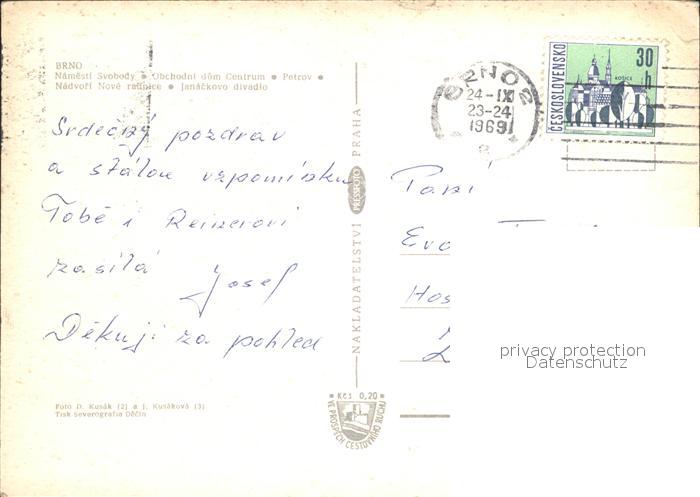 BRNO
Náměstí Svobody ● Obchodní dům Centrum ● Petrov ●
Nádvoří Nové radnice ● Janáčkovo divadlo
Srdečný pozdrav
a stálou vzpomínku
Tobě i
zasílá Josef
Děkuji za pohled
Foto D. Kusák (2) a J. Kusáková (3)
Tisk Severografia Děčín
NAKLADATELSTVÍ PRESSFOTO PRAHA
Kčs 0,20
VE PROSPĚCH CESTOVNÍHO RUCHU
BRNO 2
24-IX
23-24
1969
ČESKOSLOVENSKO
30 h
KOŠICE
Paní
Eva
Hos
privacy protection
Datenschutz